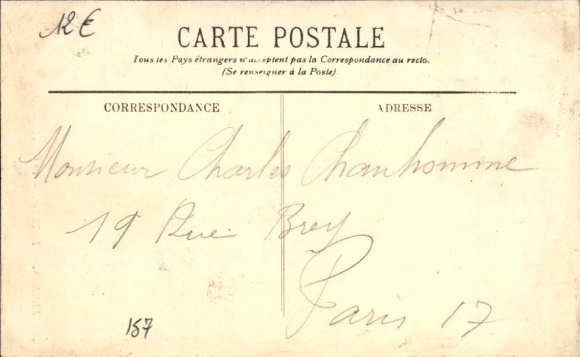 12 €
CARTE POSTALE
Tous les Pays étrangers n'acceptent pas la Correspondance au recto.
(Se renseigner à la Poste)
CORRESPONDANCE
ADRESSE
Monsieur Charles Chanhomme
19 Rue Brey
Paris 17
157